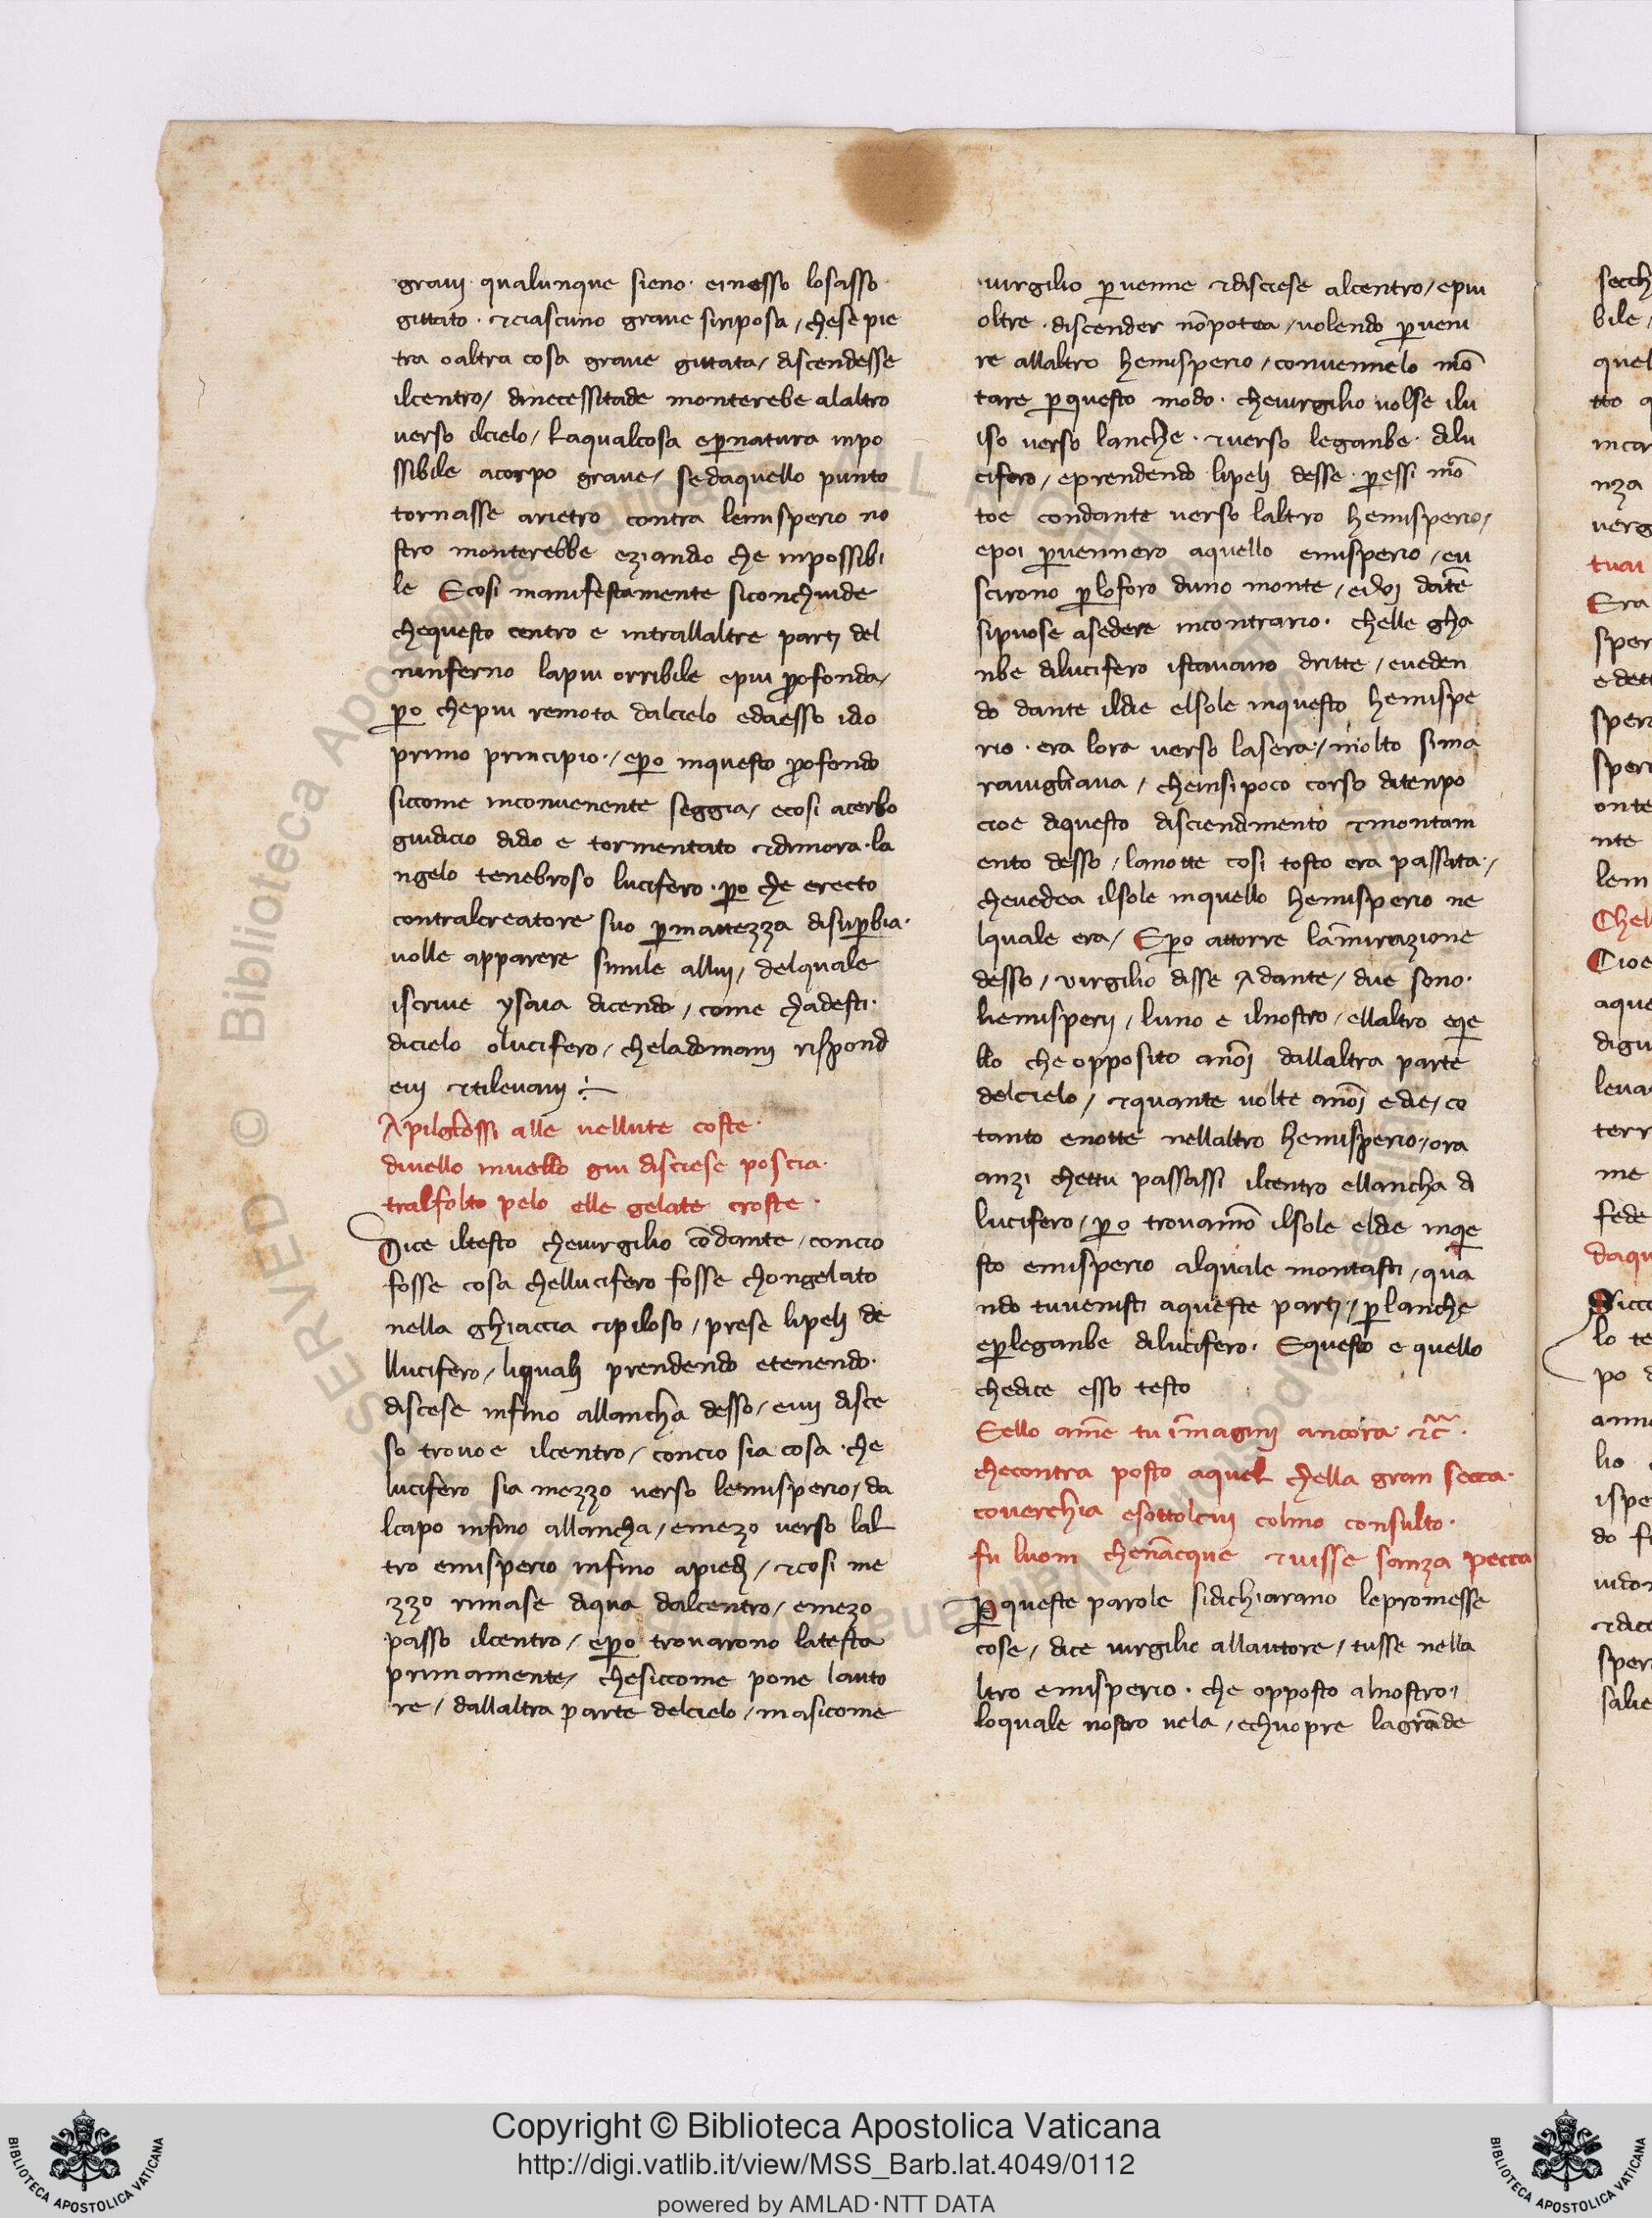 gravj· qualunque sieno· einesso losasso
gittato· ⁊ciascuno grave siriposa / chese pie
tra oaltra cosa grave gittata / discendesse
ilcentro / dinecessitade monterebe alaltro
verso ilcielo / Laqualcosa eꝑnatura inpo
ssibile acorpo grave / sedaquello punto
tornasse arietro contra lemisperio no
stro monterebbe eziando che inpossibi
le Ecosi manifestamente siconchiude
chequesto centro e intrallaltre partj del
ninferno lapiu orribile epiu ꝓfonda /
ꝑo chepiu remota dalcielo edaesso idio
primo principio· / eꝑo inquesto ꝓfondo
siccome inconvenente seggia / ecosi acerbo
giudicio didio e tormentato ⁊dimora·la
ngelo tenebroso lucifero· ꝑo che erecto
contralcreatore suo ꝑmattezza disuꝑbia·
volle apparere simile alluj / delquale
iscrive ysaia dicendo / come chadesti·
dicielo olucifero / cheladomanj rispond
evj ⁊tilevavj ÷
Apigliossi alle vellute coste·
divello invello giu disciese poscia·
tralfolto pelo elle gelate croste·
Dice iltesto chevirgilio cōdante / concio
fosse cosa chellucifero fosse chongelato
nella ghiaccia ⁊piloso / prese lipelj de
llucifero / liqualj prendendo etenendo·
discese infino allancha desso / evvj disce
so trovoe ilcentro / concio sia cosa·che
lucifero sia mezzo verso lemisperio / da
lcapo infino allancha / emezo verso lal
tro emisperio infino apiedj / ⁊cosi me
zzo rimase diqua dalcentro / emezo
passo ilcentro / eꝑo trovarono latesta
primamente / chesiccome pone lauto
re / dallaltra parte delcielo / masicome
virgilio ꝑvenne ⁊disciese alcentro / epiu
oltre·discender nōpotea / volendo ꝑveni
re allaltro hemisperio / convennelo mō
tare ꝑquesto modo· chevirgilio volse ilv
iso verso lanche· ⁊verso leganbe· dilu
cifero / eprendendo lipelj desse· ꝑessi mō
toe condante verso laltro hemisperio /
epoi ꝑvennero aquello emisperio / eu
scirono ꝑloforo duno monte / eivj dāte
sipuose asedere incontrario· chelle gha
nbe dilucifero istavano dritte / eveden
do dante ildie elsole inquesto hemispe
rio· era lora verso lasera· / molto sima
ravigliava / cheinsi poco corso ditenpo
cioe diquesto disciendimento ⁊montam
ento desso / lanotte cosi tosto era passata· /
chevedea ilsole inquello hemisperio ne
lquale era / Eꝑo attorre lāmirazione
desso / virgilio disse Adante / due sono·
hemisperij / luno e ilnostro / ellaltro eqe
llo che opposito anōj dallaltra parte
delcielo / ⁊quante volte anōj edie / co
tanto enotte nellaltro hemisperio· / ora
anzi chettu passassi ilcentro ellancha di
lucifero / ꝑo trovamō ilsole eldie inqe
sto emisperio alquale montasti / qua
ndo tuvenisti aqueste partj / ꝑlanche
eꝑleganbe dilucifero· Equesto e quello
chedice esso testo
Eello amē tu īmaginj ancora· ⁊c̃·
checontra posto aquel chella gran secca·
coverchia esottolcuj colmo consulto·
fu luom chenācque ⁊visse sanza pecca
Ꝑqueste parole sidichiarano lepromesse
cose / dice virgilio allautore / tusse nella
ltro emisperio· che opposto alnostro /
loquale nostro vela / echuopre lagrāde